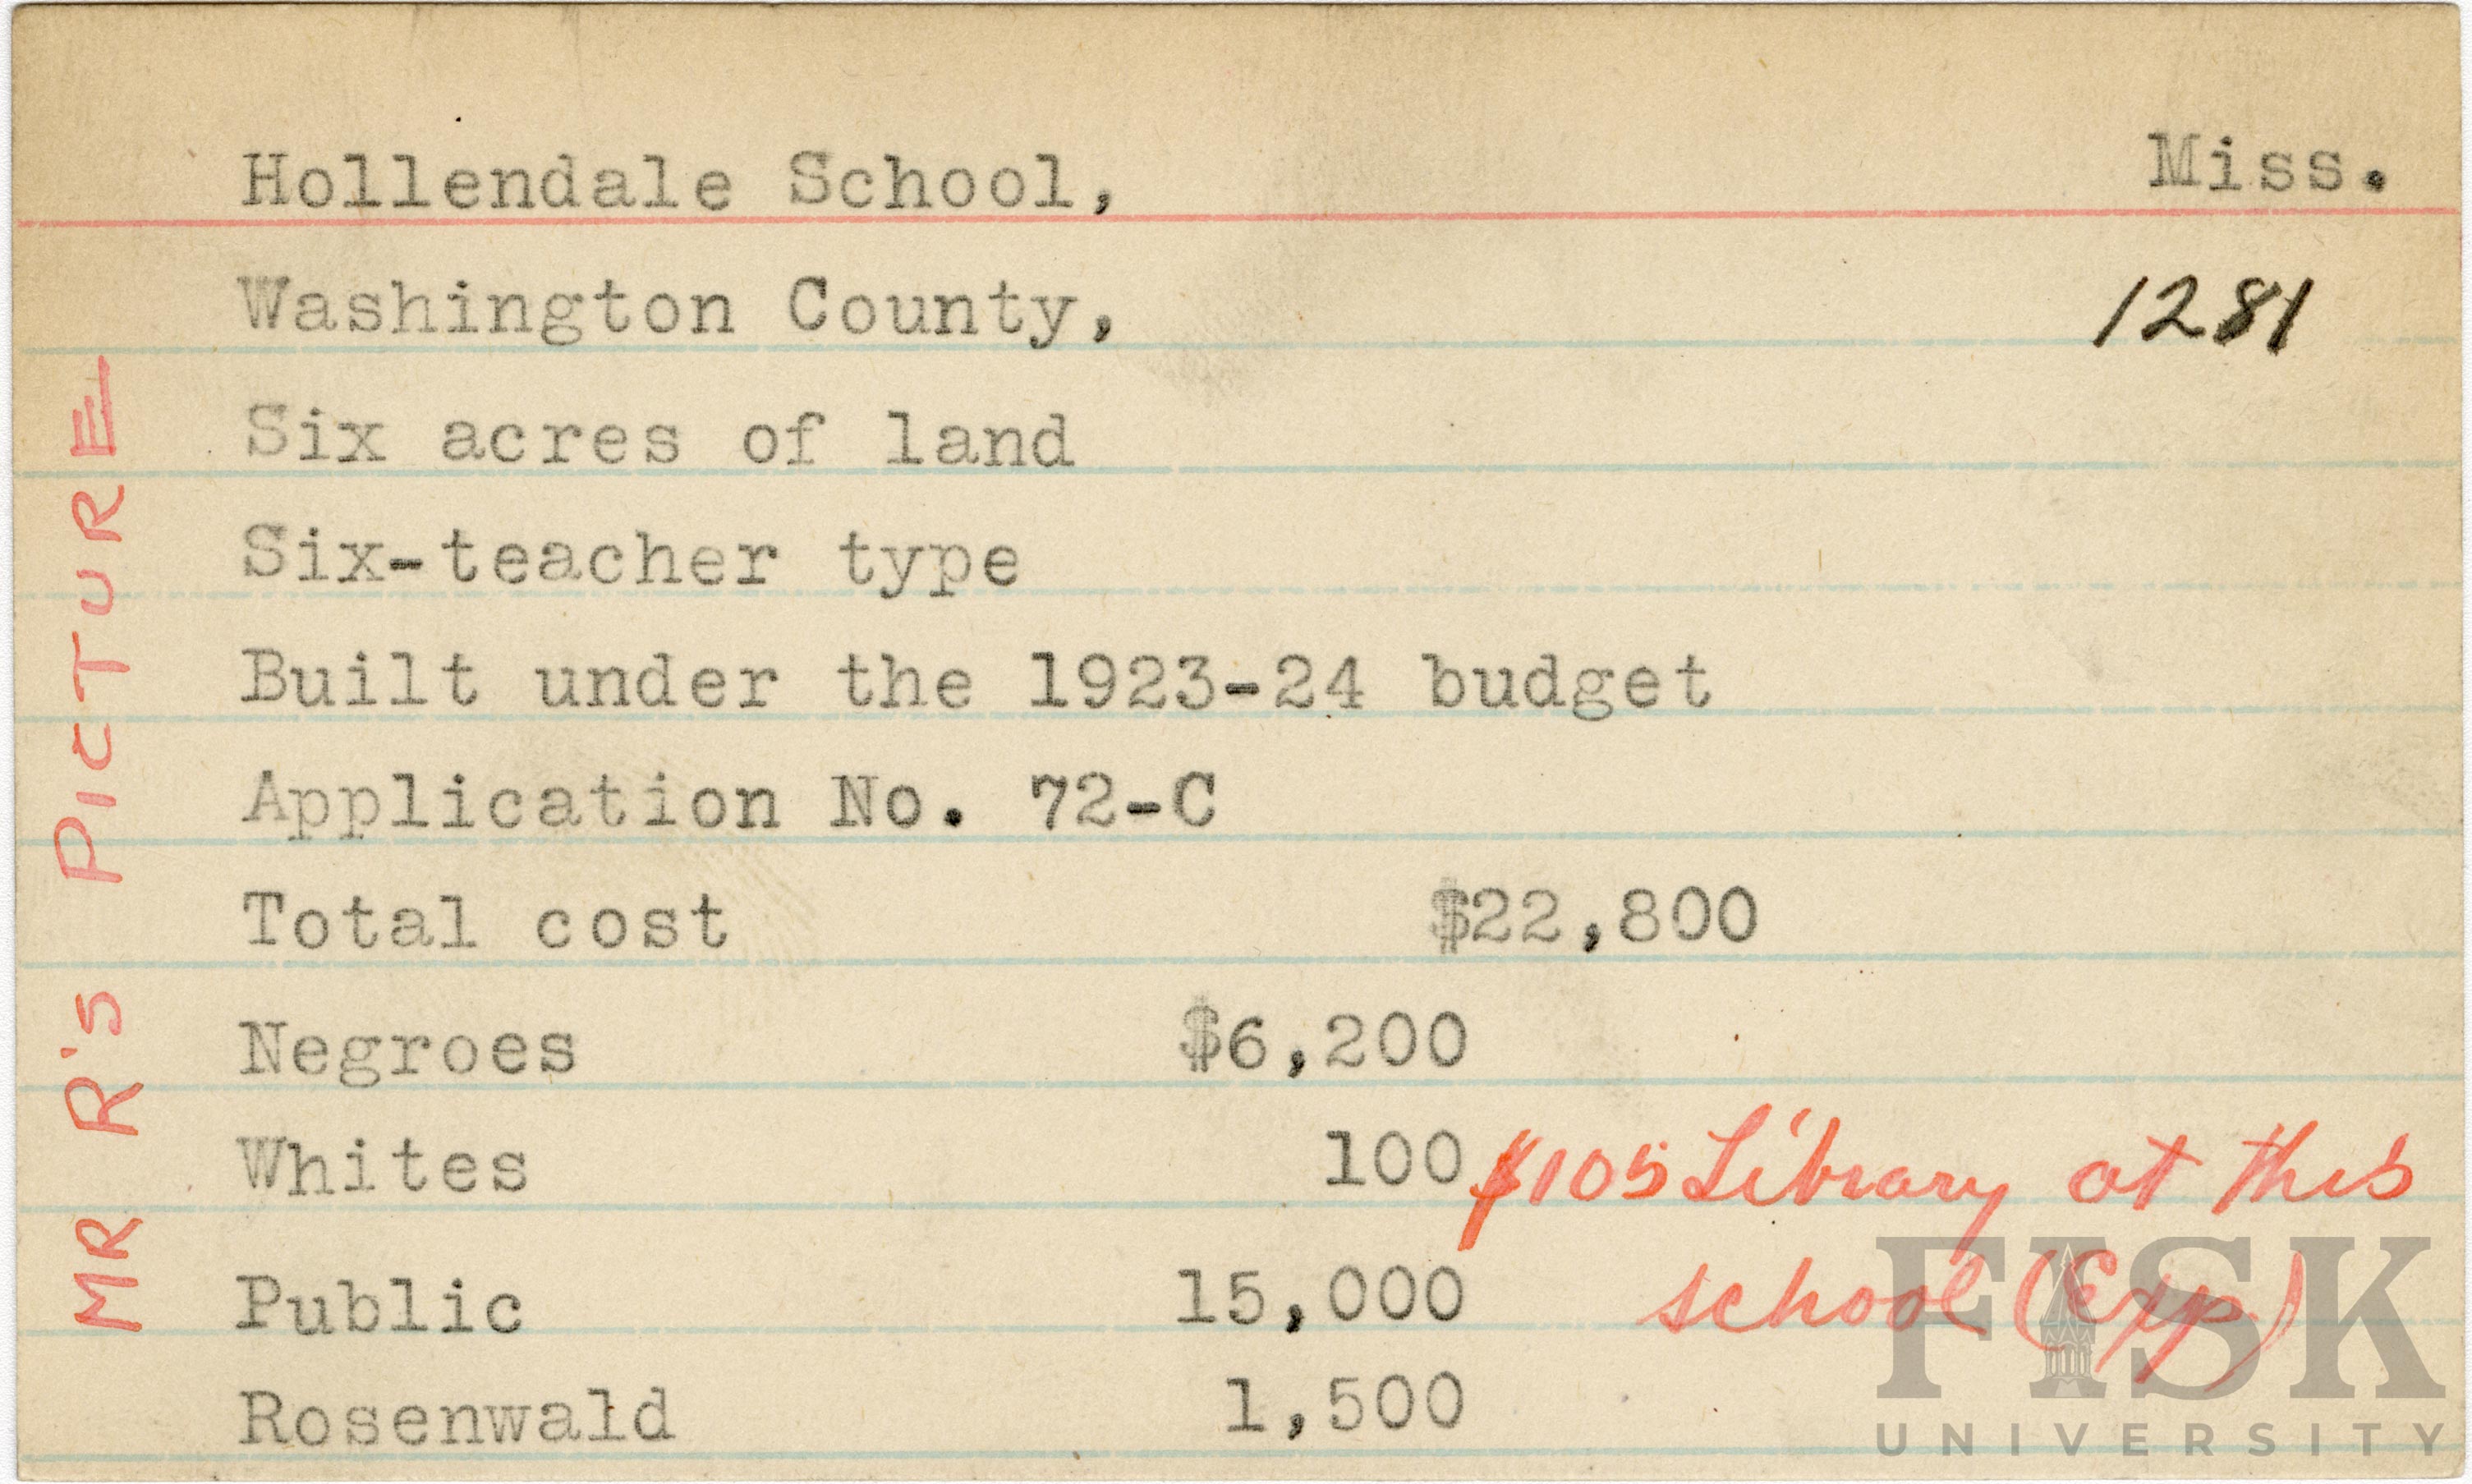 Hollendale School,
Miss.
Washington County,
1281
Six acres of land
Six-teacher type
Built under the 1923-24 budget
Application No. 72-C
Total cost $22,800
Negroes $6,200
Whites 100
$105 Library at this
school (Exp)
Public 15,000
Rosenwald 1,500
MR R's PICTURE
FISK
UNIVERSITY